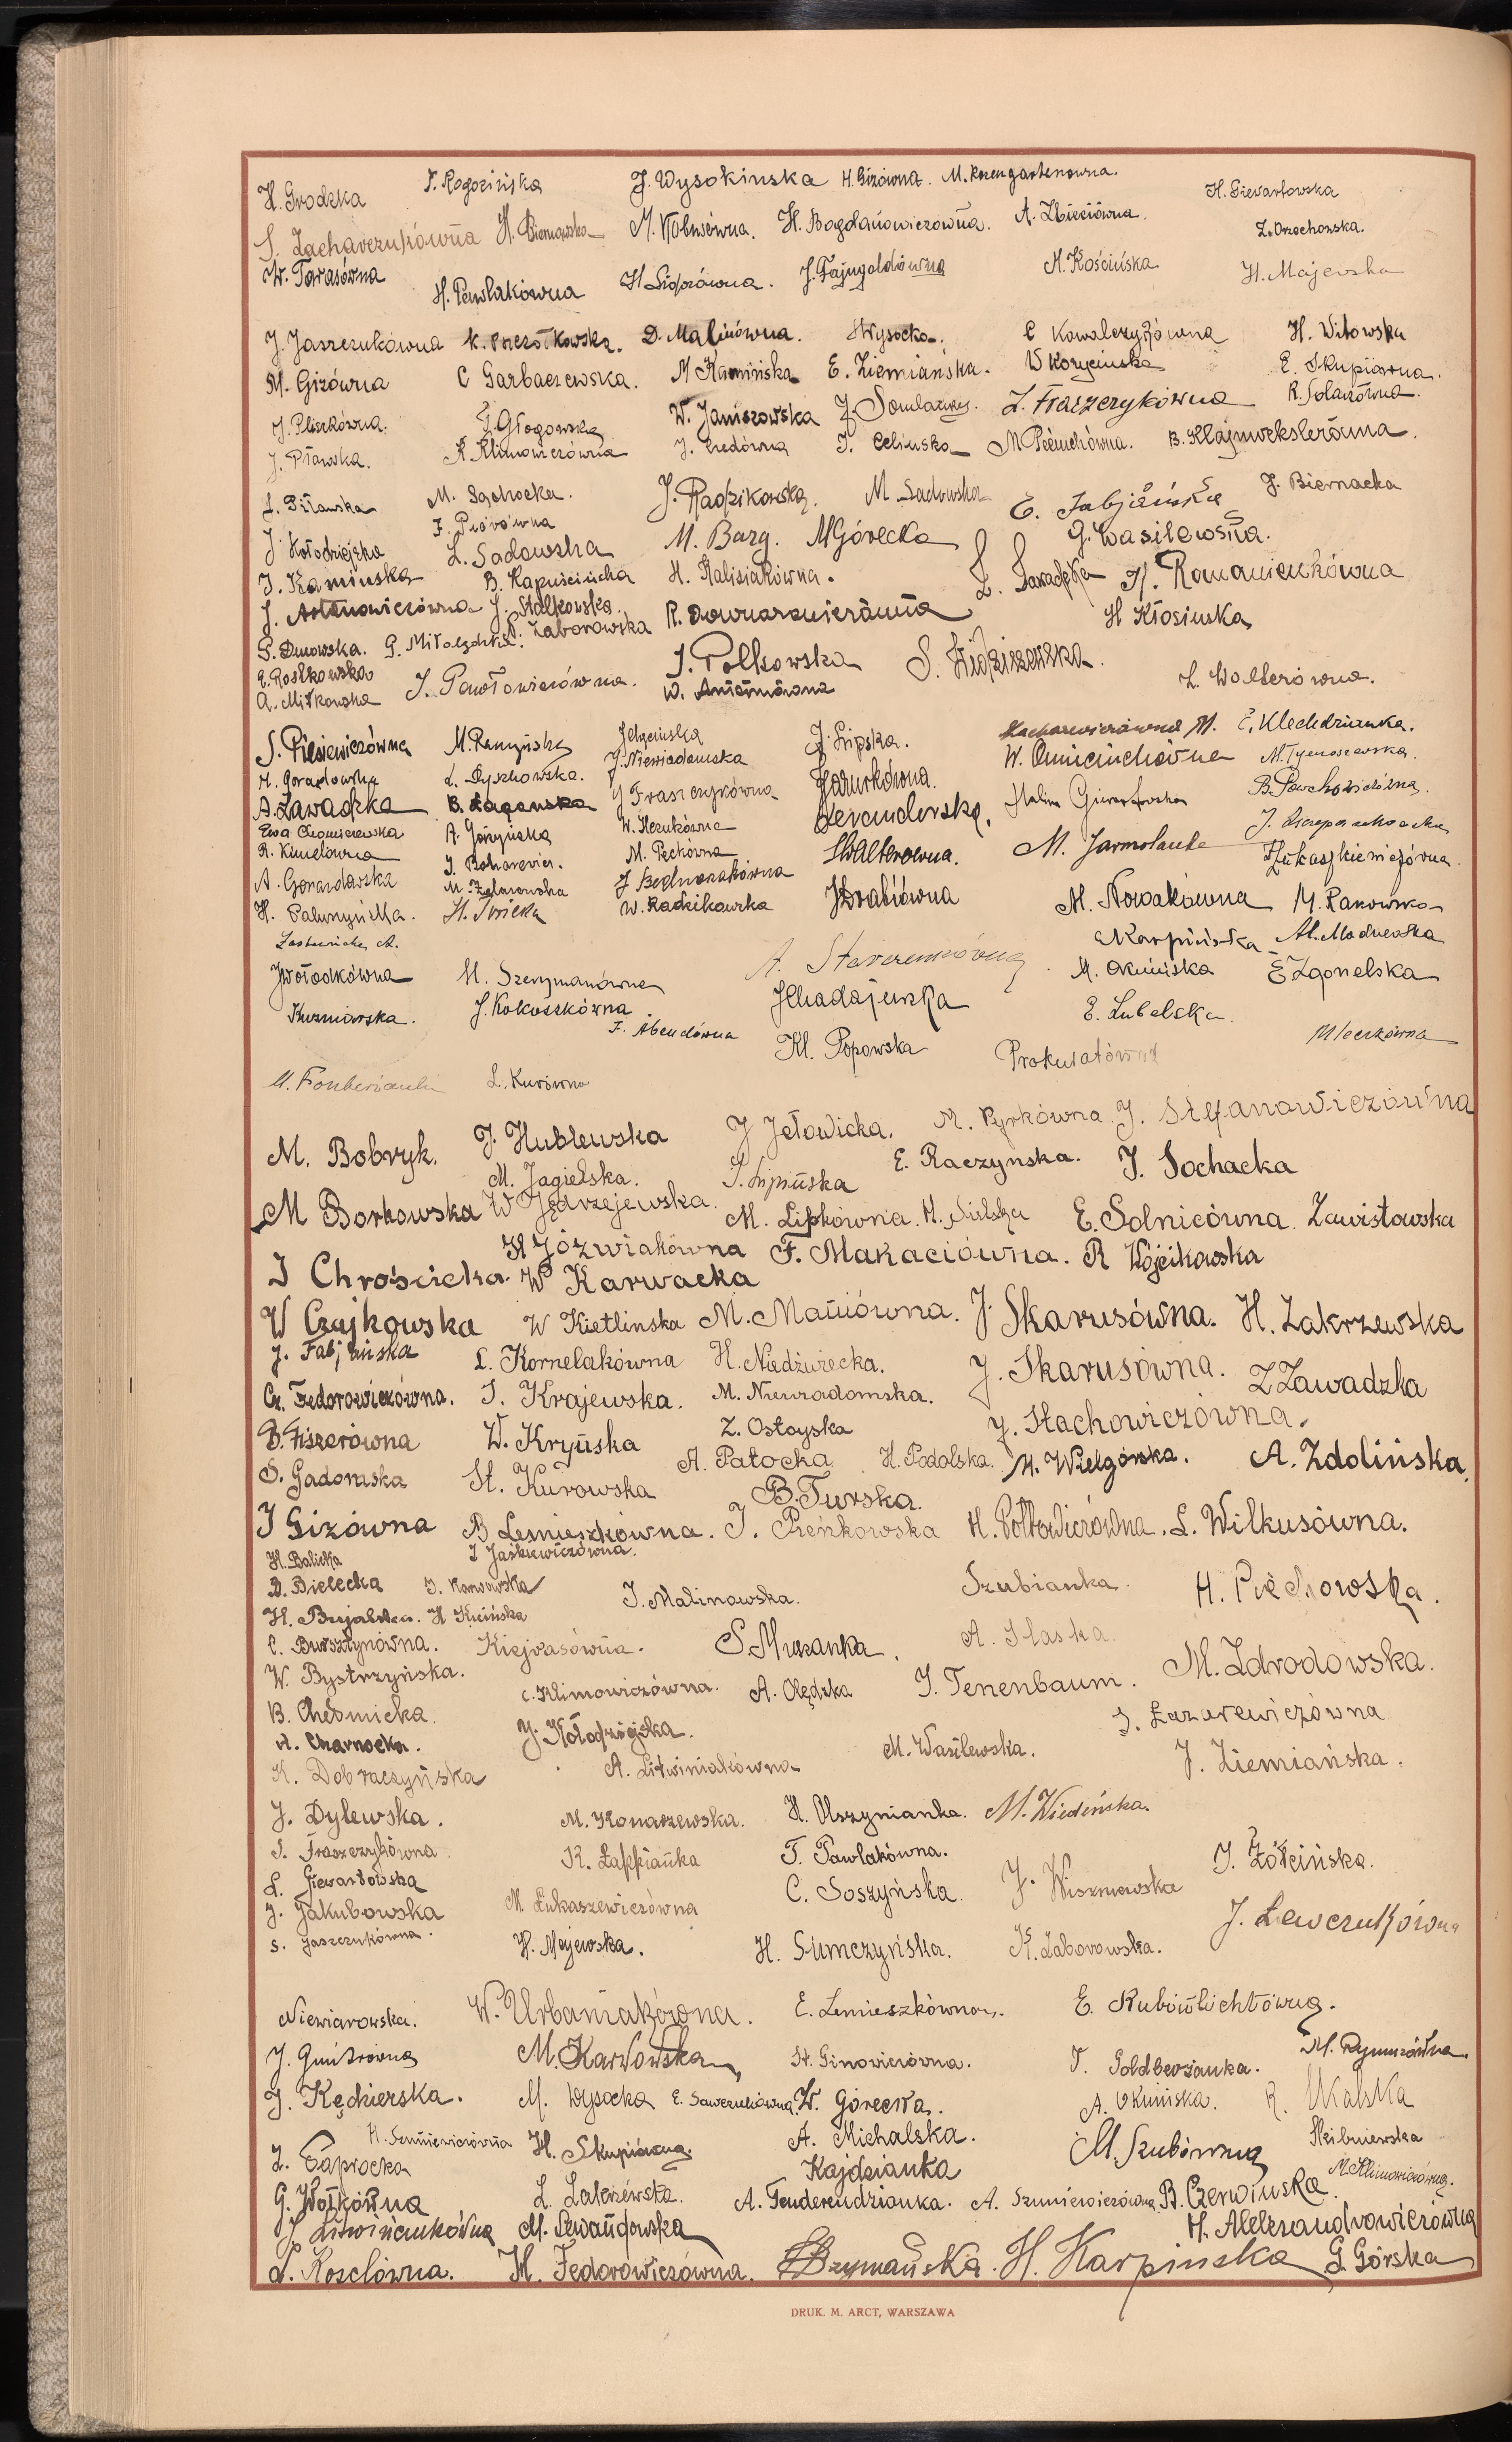 H. Grodzka T. Rogozińska J. Wysokinska H. Gizówna. M. Rozengartenowna. H. Giewartowska
S. Zacharczukówna H. Biernawska M. Kobusówna. H. Bogdanowiczówna. A. Zbieciówna. Z. Orzechowska.
W. Tarasówna H. Pawlakówna H. Sidorówna. J. Fajngoldówna M. Kościńska H. Majewska
J. Jaszczukówna K. Pszczółkowska. D. Malinówna. H Wysocka. C Kowalczykówna H. Witowska
M. Gizówna C Garbaczewska. M Kamińska E. Ziemiańska. W Korycinska E. Skupiówna.
J. Pliszkówna. J. Głogowska W. Janiszowska J. Z. Fraszczykówna R. Solarzówna.
J. Pławska. K. Klimowiczówna J. T. Celinska M Pieńuchówna. B. Klajnwekslerówna.
L. Piławska M. Sochocka. J. Radzikowska. M. Sadowska E. Fabjańska J. Biernacka
J. Kołodziejska F. Piórówna M. Burg. M Górecka G. Wasilewska.
J. Kaminska L. Sadowska H. Kalisiakówna. Z. Zawadzka H. Romanienkówna
J. Antonowiczówna B. Kapuścińska J. Stalkowska. R. Downarowiczówna H Kłosinska
S. Dmowska. G. Miłolędzka. P. Zaborowska J. Polkowska S. Widziszewska.
E. Roszkowska J. Pawłowiczówna. W. Antetmówna L. Wolterówna.
A. Mitkowska
S. Pilsiewiczówna M. Raczyńska J. Lipska. M. E. Klechdzianka.
H. Gerardowska L. Dyszkowska. J. Niewiadomska Jazurkówna. W. Omieciuchówna M. Tymoszewska.
A. Zawadzka B. Łagańska J Fraszczykówna Lewandowska. Halina Giewartowska B. Pawłowiczówna.
Ewa Chomiczewska A. Górzyńska W. Herukówna Walterowna. M. Jarmolanka
R. Kimelówna J. Boharewicz. M. Pęckówna H Łukaszkiewiczówna.
A. Gerardowska M. Żelazowska J Bednarzakówna J Drabiówna M. Nowakówna M. Rakowska
H. Paluszyńska. H. Świeka W. Radzikowska Karpińska M. Modnewska
Zastawicka A. A. Stawczenkówna M. Okuńiska E Zgonelska
J Wołodkówna H. Szczymanówna J Chadajewska E. Lubelska.
Kuzniarska. J. Kokoszkówna F. Abendówna Kl. Popowska Prokuratówna Mleczkówna
L. Kurówna
M. Bobryk. J. Hublewska J Jełowicka. M. Pyrkówna. J. Stefanowiczówna
M. Jagielska. J. Lipińska E. Raczyńska. J. Sochacka
M Borkowska W Jędrzejewska. M. Lipkówna. H. Sielska E. Solnicówna. Zawistowska
H Józwiakówna F. Makaciówna. R Wójcikowska
J Chrościcka. W Karwacka
W Czajkowska W Kietlinska M. Maniówna. J. Skarusówna. H. Zakrzewska
J. Fabjańska L. Kornelakówna H. Niedźwiecka. J. Skarusówna. Z Zawadzka
Cz. Fedorowiczówna. J. Krajewska. M. Niewiadomska. J. Stachowiczówna.
B. Fiszerówna W. Kryńska Z. Ostoyska
S. Gadomska St. Kurowska A. Patocka H. Podolska. M. Wielgórska. A. Zdolińska.
B. Turska.
J Gizówna B Lemieszkówna. J. Pieńkowska H. Połtowiczówna. L. Wilkusówna.
H. Balicka J Jaśkiewiczówna.
D. Bielecka J. Karwowska J. Malinowska. Szubianka. H. Piechowska.
H. Bujalska. H Kicińska
C. Bursztynówna. Kiejrasówna. S. Muszanka. A. Słaska.
W. Bystrzyńska. C. Klimowiczówna. A. Olędzka J. Tenenbaum. M. Zdrodowska.
B. Chełmicka. J. Kołodziejska. S. Łazarewiczówna
A. Charnocka. A. Litwiniakówna M. Wasilewska. J. Ziemiańska.
K. Dobraczyńska
J. Dylewska. M. Konarzewska. H. Olszynianka. M. Wiedeńska.
S. Fraszczykówna. K. Łappianka T. Pawlakówna. J. Żółcińska.
L. Giewartowska C. Soszyńska. J. Wiszniewska
J. Jakubowska M. Łukaszewiczówna J. Lewczukówna
S. Jaszczukówna. H. Majewska. H. Sumczyńska. K. Zaborowska.
Niewiarowska. W. Urbaniakówna. E. Lemieszkówna. E. Rubinlichtówna.
J. Gmitrówna M. Karwowska St. Ginowiczówna. T. Goldberżanka. M. Rymuszówna
J. Kędzierska. M. Wysocka E. Sawczukówna. W. Górecka. A. Okuńiska. R. Ukalska
Z. Paprocka H. Szmiewiczówna H. Skupiówna. A. Michalska. M. Szubówna Skibniewska
G. Wołkówna L. Zakrzewska. Kajdzianka M Klimowiczówna.
J. Litwiniankówna M. Lewandowska A. Fenderendzianka. A. Szmiewiczówna B. Czerwińska H. Aleksandrowiczówna
L. Koselówna. H. Fedorowiczówna. Szymańska. H. Karpinska G. Górska
DRUK. M. ARCT, WARSZAWA